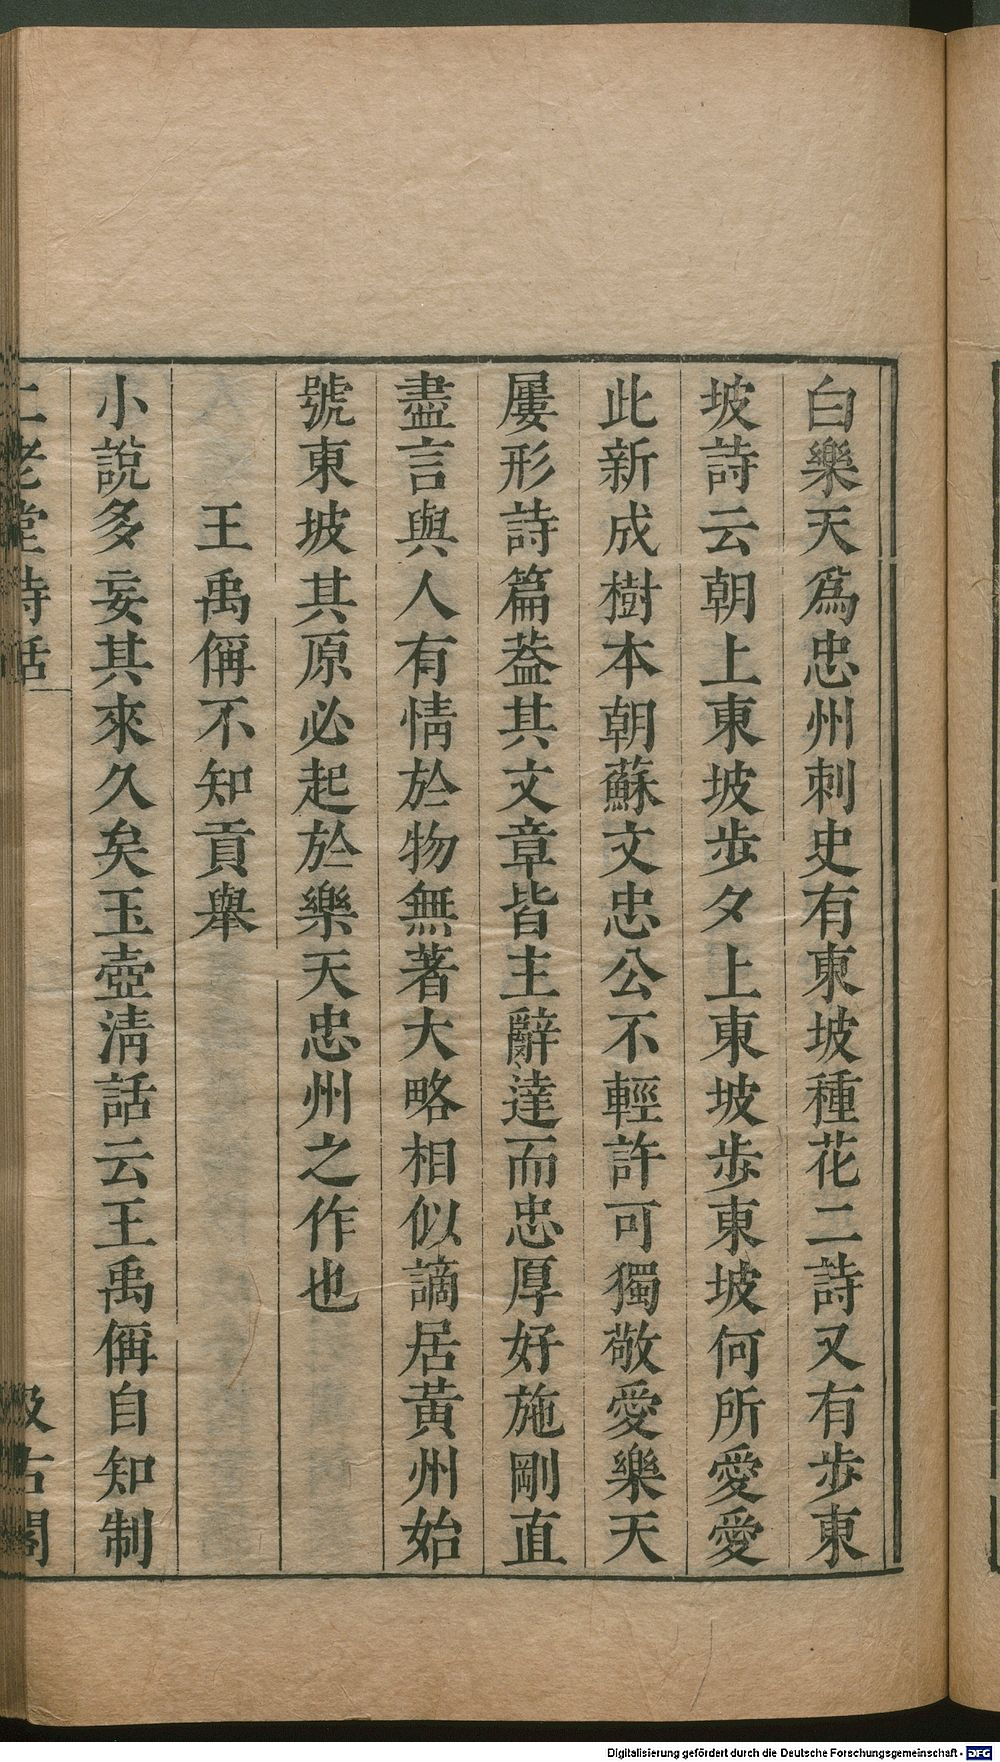 白樂天爲忠州刺史有東坡種花二詩又有步東
坡詩云朝上東坡步夕上東坡步東坡何所愛愛
此新成樹本朝蘇文忠公不輕許可獨敬愛樂天
屢形詩篇蓋其文章皆主辭達而忠厚好施剛直
盡言與人有情於物無著大略相似謫居黃州始
號東坡其原必起於樂天忠州之作也
王禹偁不知貢舉
小說多妄其來久矣玉壺淸話云王禹偁自知制
二老堂詩話
汲古閣
Digitalisierung gefördert durch die Deutsche Forschungsgemeinschaft - DFG